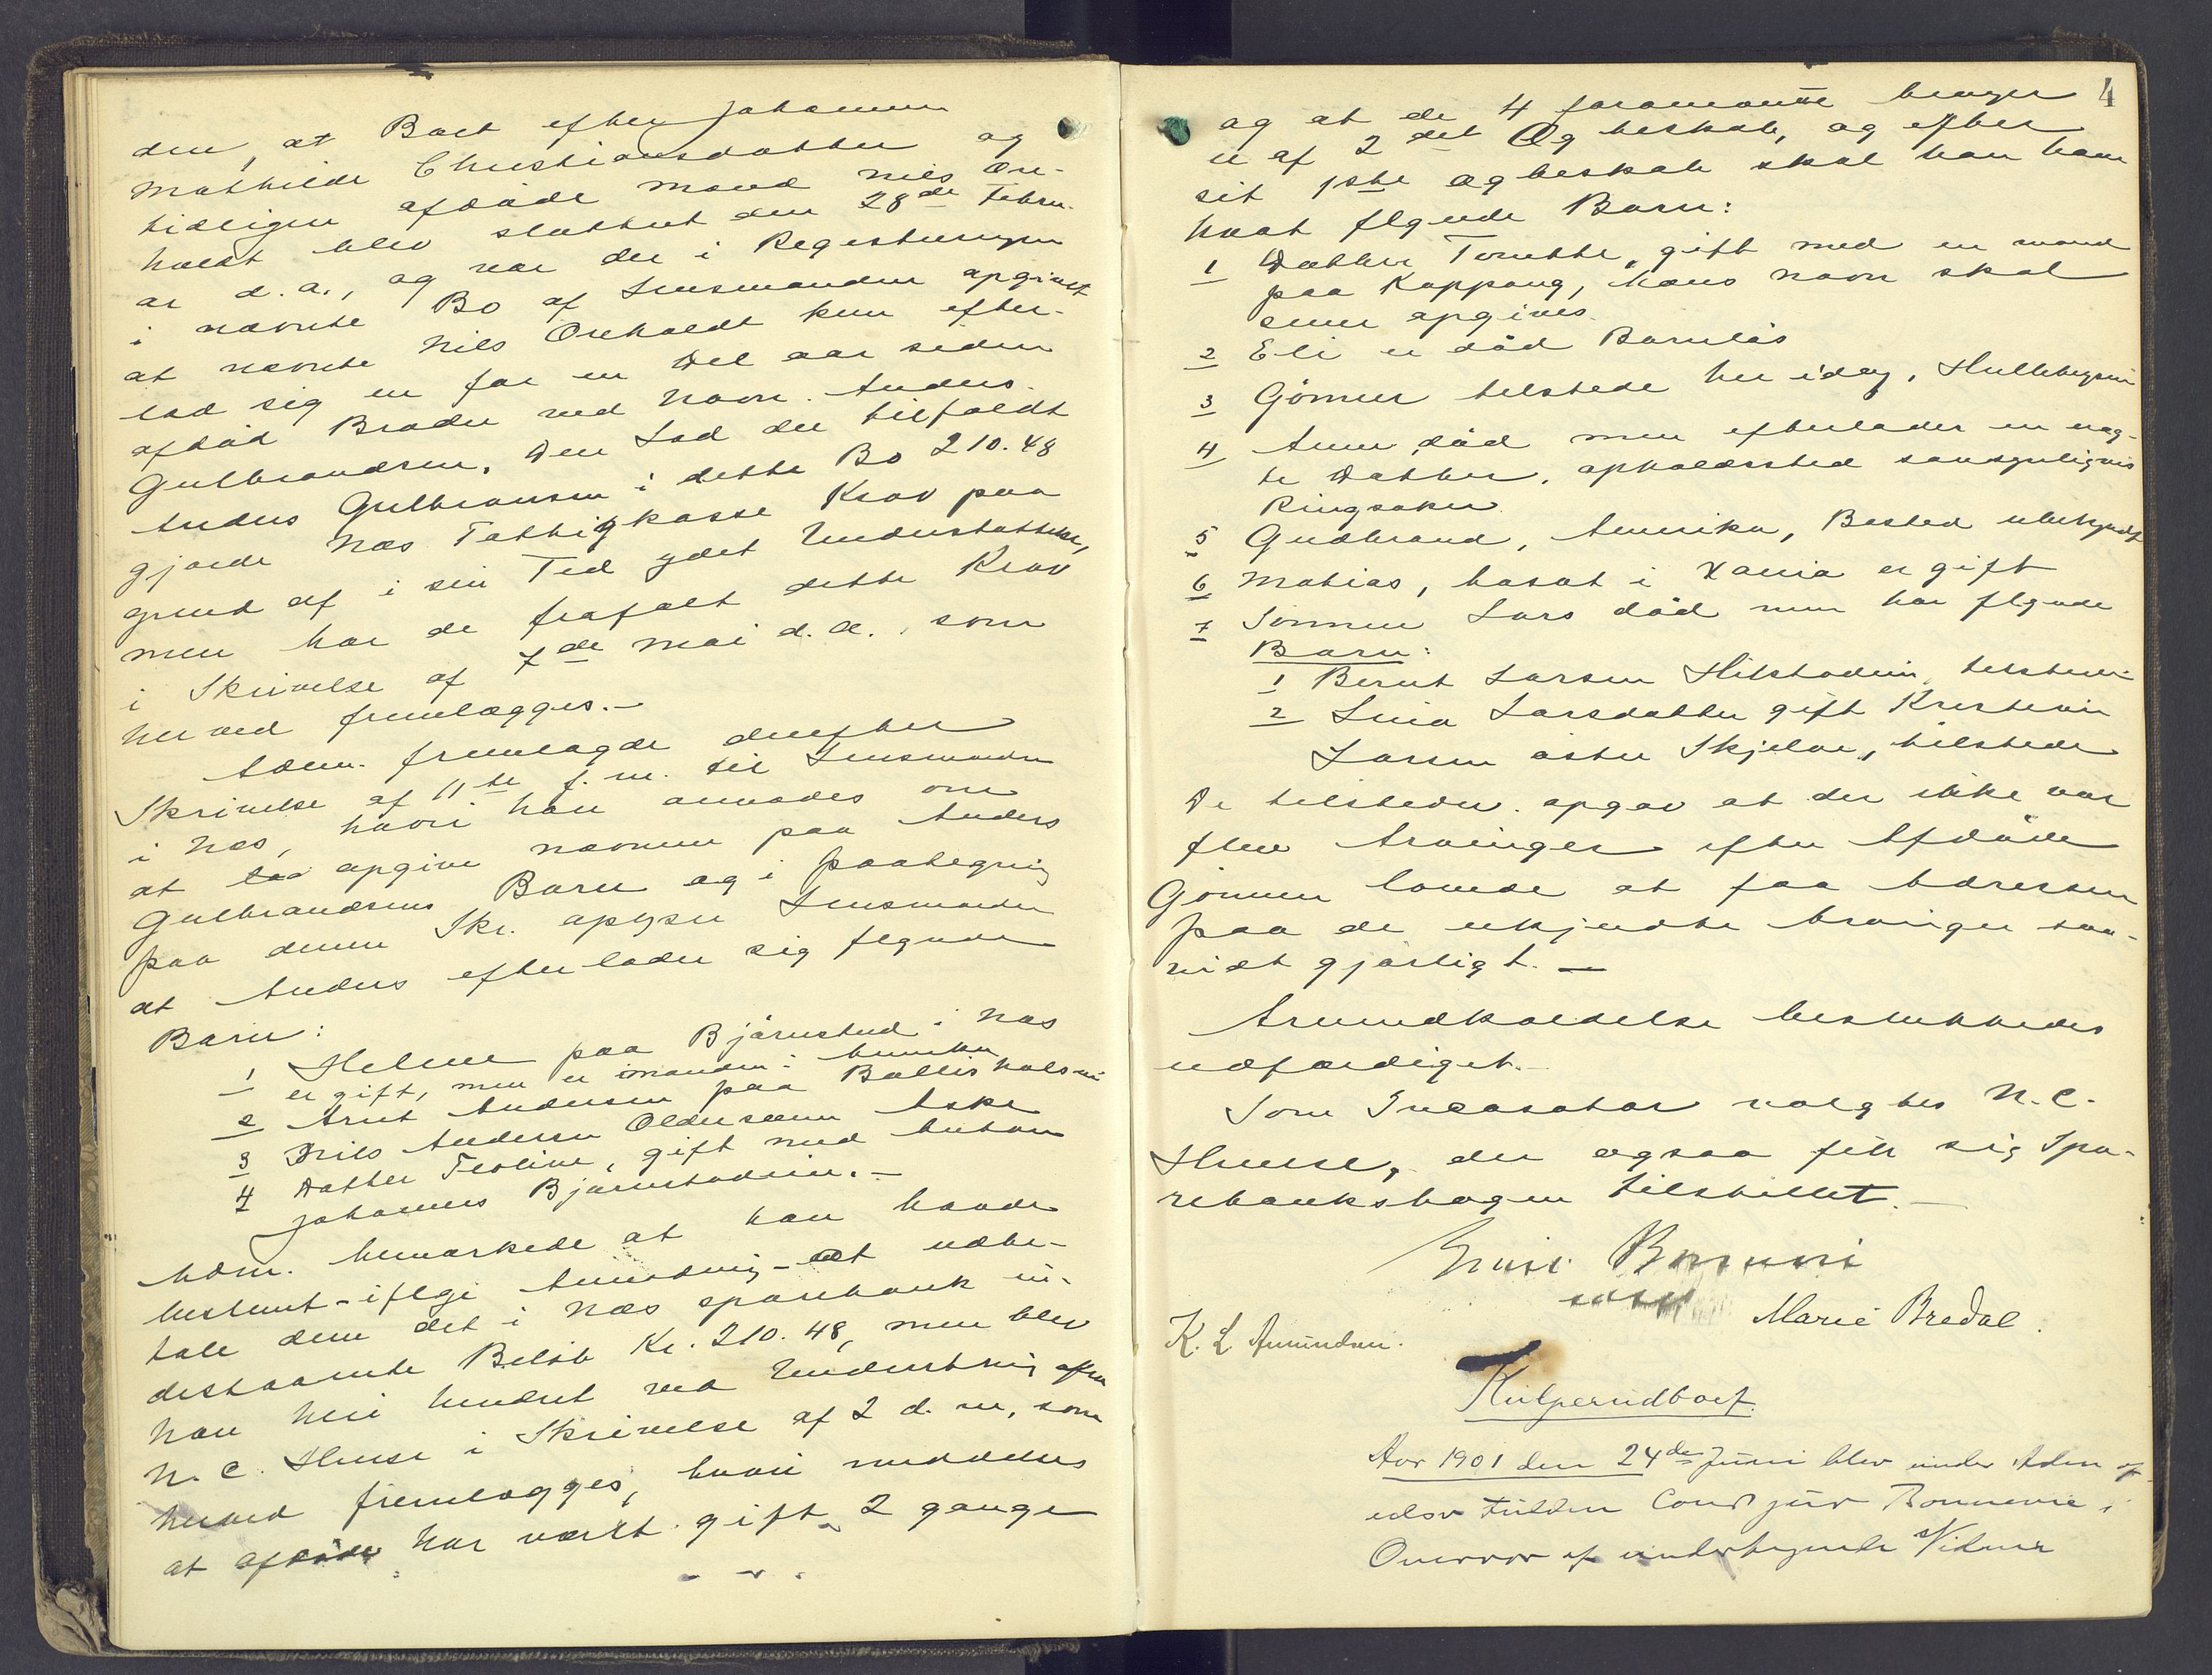 den, at Boet efter Johannes
Mathilde Christiansdatter og
tidligere afdöde mand Nils Ön-
holdt blev sluttet den 28de Febru-
ar d.a., og var der i Registeringen
i nævnte Bo af Lensmanden opgivet
at nævnte Nils Önholdt kun efter-
lod sig en for en Del aar siden
afdöd Broder ved Navn Anders
Gulbrandsen. Den Lod der tilfaldt
Anders Gulbransen i dette Bo 210.48
gjorde Næs Fattigkasse Krav paa
grund af i sin Tid ydet Understöttelse,
men har de frafalt dette Krav
i Skrivelse af 7de Mai d.a., som
herved fremlægges.—
Adm. fremlagde derefter
Skrivelse af 11te f.m. til Lensmanden
i Næs, hvori han anmodes om
at opgive navnene paa Anders
Gulbrandsens Barn og i paategning
paa denne Skr. oplyser Lensmanden
at Anders efterlader sig flgende
Barn:
1 Helene paa Bjärnstad i Næs
er gift, men er manden i Amerika
2 Arnt Andersen paa Ballishalsen
3 Nils Andersen Oldersveen Aske
4 Datter Teoline, gift med Anton
Johannes Bjarnstadeie.—
Adm. bemærkede at han havde
bestemt - iflge Anmodning - at udbe-
tale dem det i Næs sparebank in-
destaaende Belöb Kr. 210.48, men blev
han heri hindret ved Underretning fra
N.C. Huuse i Skrivelse af 2 d.m., som
herved fremlægges, hvori meddeles
at afdöde har været gift 2 gange
4
og at de 4 foranævnte
er af 2det Ægteskab, og efter
sit 1ste ægteskab skal han have
havt flgende Barn:
1 Datter Tonette, gift med en mand
paa Koppang, hans navn skal
senere opgives.
2 Eli er död Barnlös
3 Gönner tilstede her idag,
4 Anne död men efterlader en uæg-
te Datter, opholdssted sansynligvis
Ringsaker
5 Gudbrand, Amerika, Bosted ubekjendt
6 Mathias, bosat i Xania er gift
7 Sönnen Lars död men har flgende
Barn:
1 Bernt Larsen Hilstadeie, tilstede
2 Lina Larsdatter gift Kristian
Larsen öster Skjelve, tilstede
De tilstedev. opgav at der ikke var
flere Arvinger efter Afdöde
Gönner lovede at faa Adressen
paa de ukjendte Arvinger saa-
vidt gjörligt. —
Arveindkaldelse besluttedes
udfærdiget.—
Som Incasator valgtes N.C.
Huuse, der ogsaa fik sig Spa-
rebanksbogen tilstillet.—
Marie Bredal.
K. L. Amundsen.
Kulperudboet.
Aar 1901 den 24de Juni blev under Adm. af
edsv Fuldm Cand jur Bonnevie i
Overvær af undertegnede Vidner